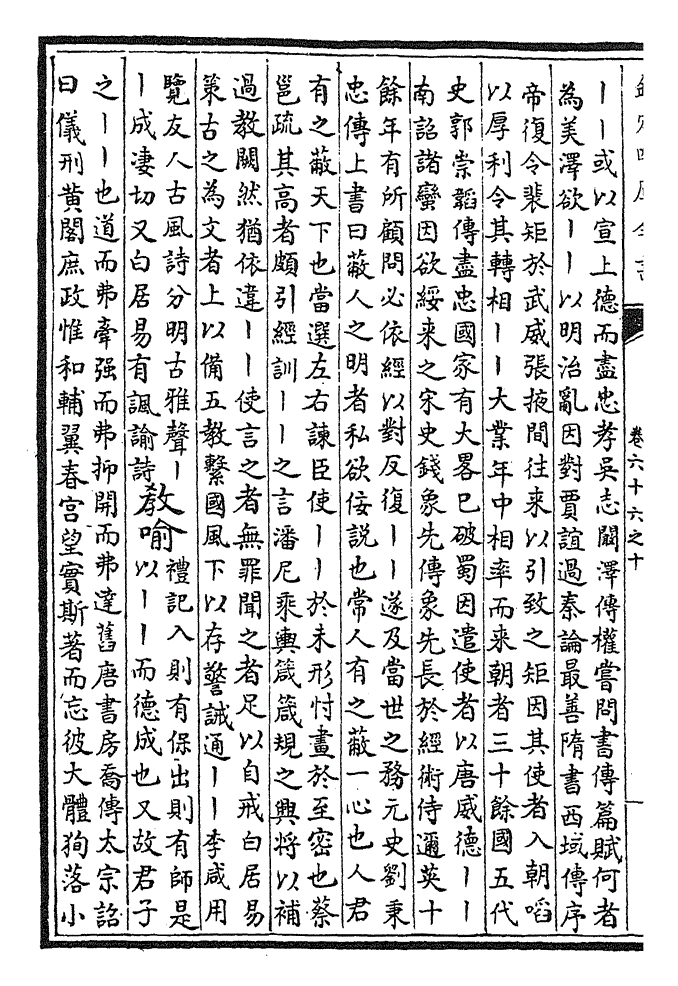 欽定四庫全書
卷六十六之十
丨丨或以宣上德而盡忠孝吳志闞澤傳權嘗問書傳篇賦何者
為美澤欲丨丨以明治亂因對賈誼過秦論最善隋書西域傳序
帝復令裴矩於武威張掖間往來以引致之矩因其使者入朝㗖
以厚利令其轉相丨丨大業年中相率而来朝者三十餘國五代
史郭崇韜傳盡忠國家有大畧已破蜀因遣使者以唐威德丨丨
南詔諸蠻因欲綏来之宋史錢象先傳象先長於經術侍邇英十
餘年有所顧問必依經以對反復丨丨遂及當世之務元史劉秉
忠傳上書曰蔽人之明者私欲佞説也常人有之蔽一心也人君
有之蔽天下也當選左右諫臣使丨丨於未形忖畫於至密也蔡
邕疏其高者頗引經訓丨丨之言潘尼乘輿箴箴規之興將以補
過教闕然猶依違丨丨使言之者無罪聞之者足以自戒白居易
策古之為文者上以備五教繫國風下以存警誡通丨丨李咸用
覽友人古風詩分明古雅聲丨
丨成凄切又白居易有諷諭詩
教喻
禮記入則有保出則有師是
以丨丨而德成也又故君子
之丨丨也道而弗牽强而弗抑開而弗達舊唐書房喬傳太宗詔
曰儀刑黄閣庶政惟和輔翼春宫望實斯著而忘彼大體狥落小